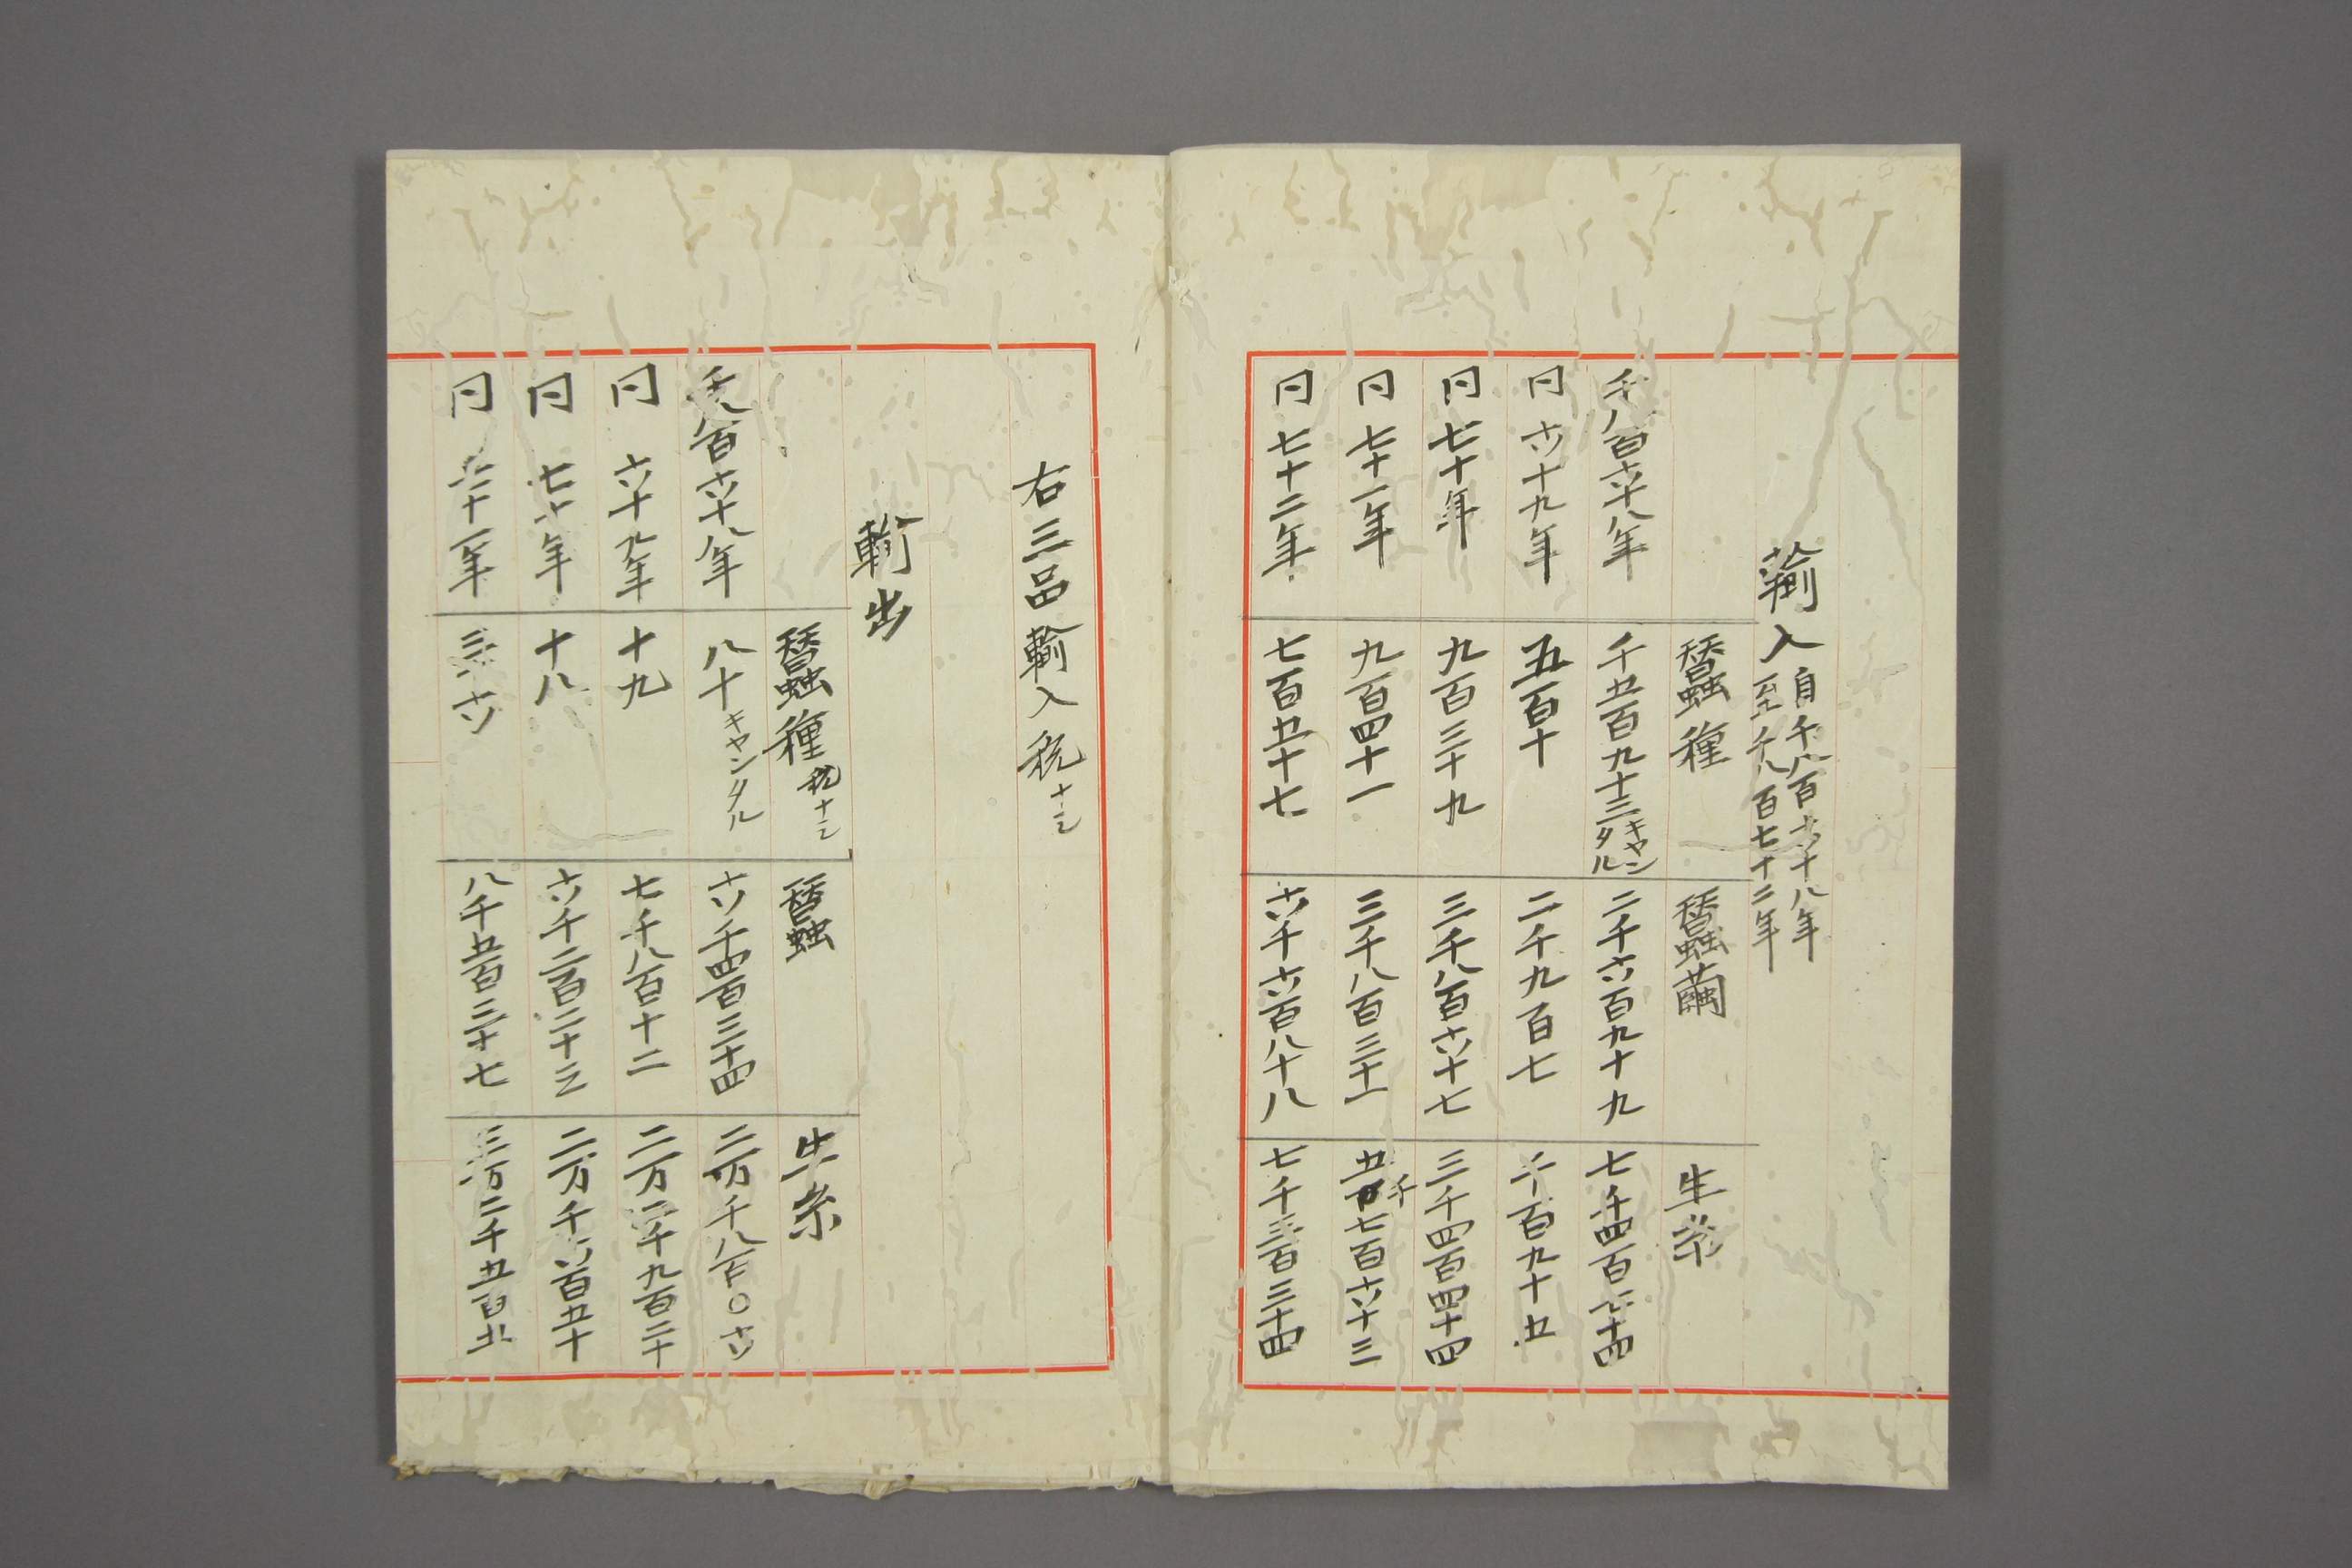 輸入 自千八百六十八年
至千八百七十二年
蠶種 蠶繭 生糸
千八百六十八年 千五百九十三キヤンタル 二千六百九十九 七千四百 十四
同 六十九年 五百十 二千九百七 千百九十五
同 七十年 九百三十九 三千八百六十七 三千四百四十四
同 七十一年 九百四十一 三千八百三十一 五千七百六十三
同 七十二年 七百五十七 六千六百八十八 七千三百三十四
右三品輸入税十ニ
輸出
蠶種 税十ニ 蠶 生糸
千八百六十八年 八十キヤンタル 六千四百三十四 二万千八百〇六
同 六十九年 十九 七千八百十二 二万 千九百二十
同 七十年 十八 六千二百二十三 二万千六百五十
同 七十一年 三十六 八千五百三十七 三万二千五百